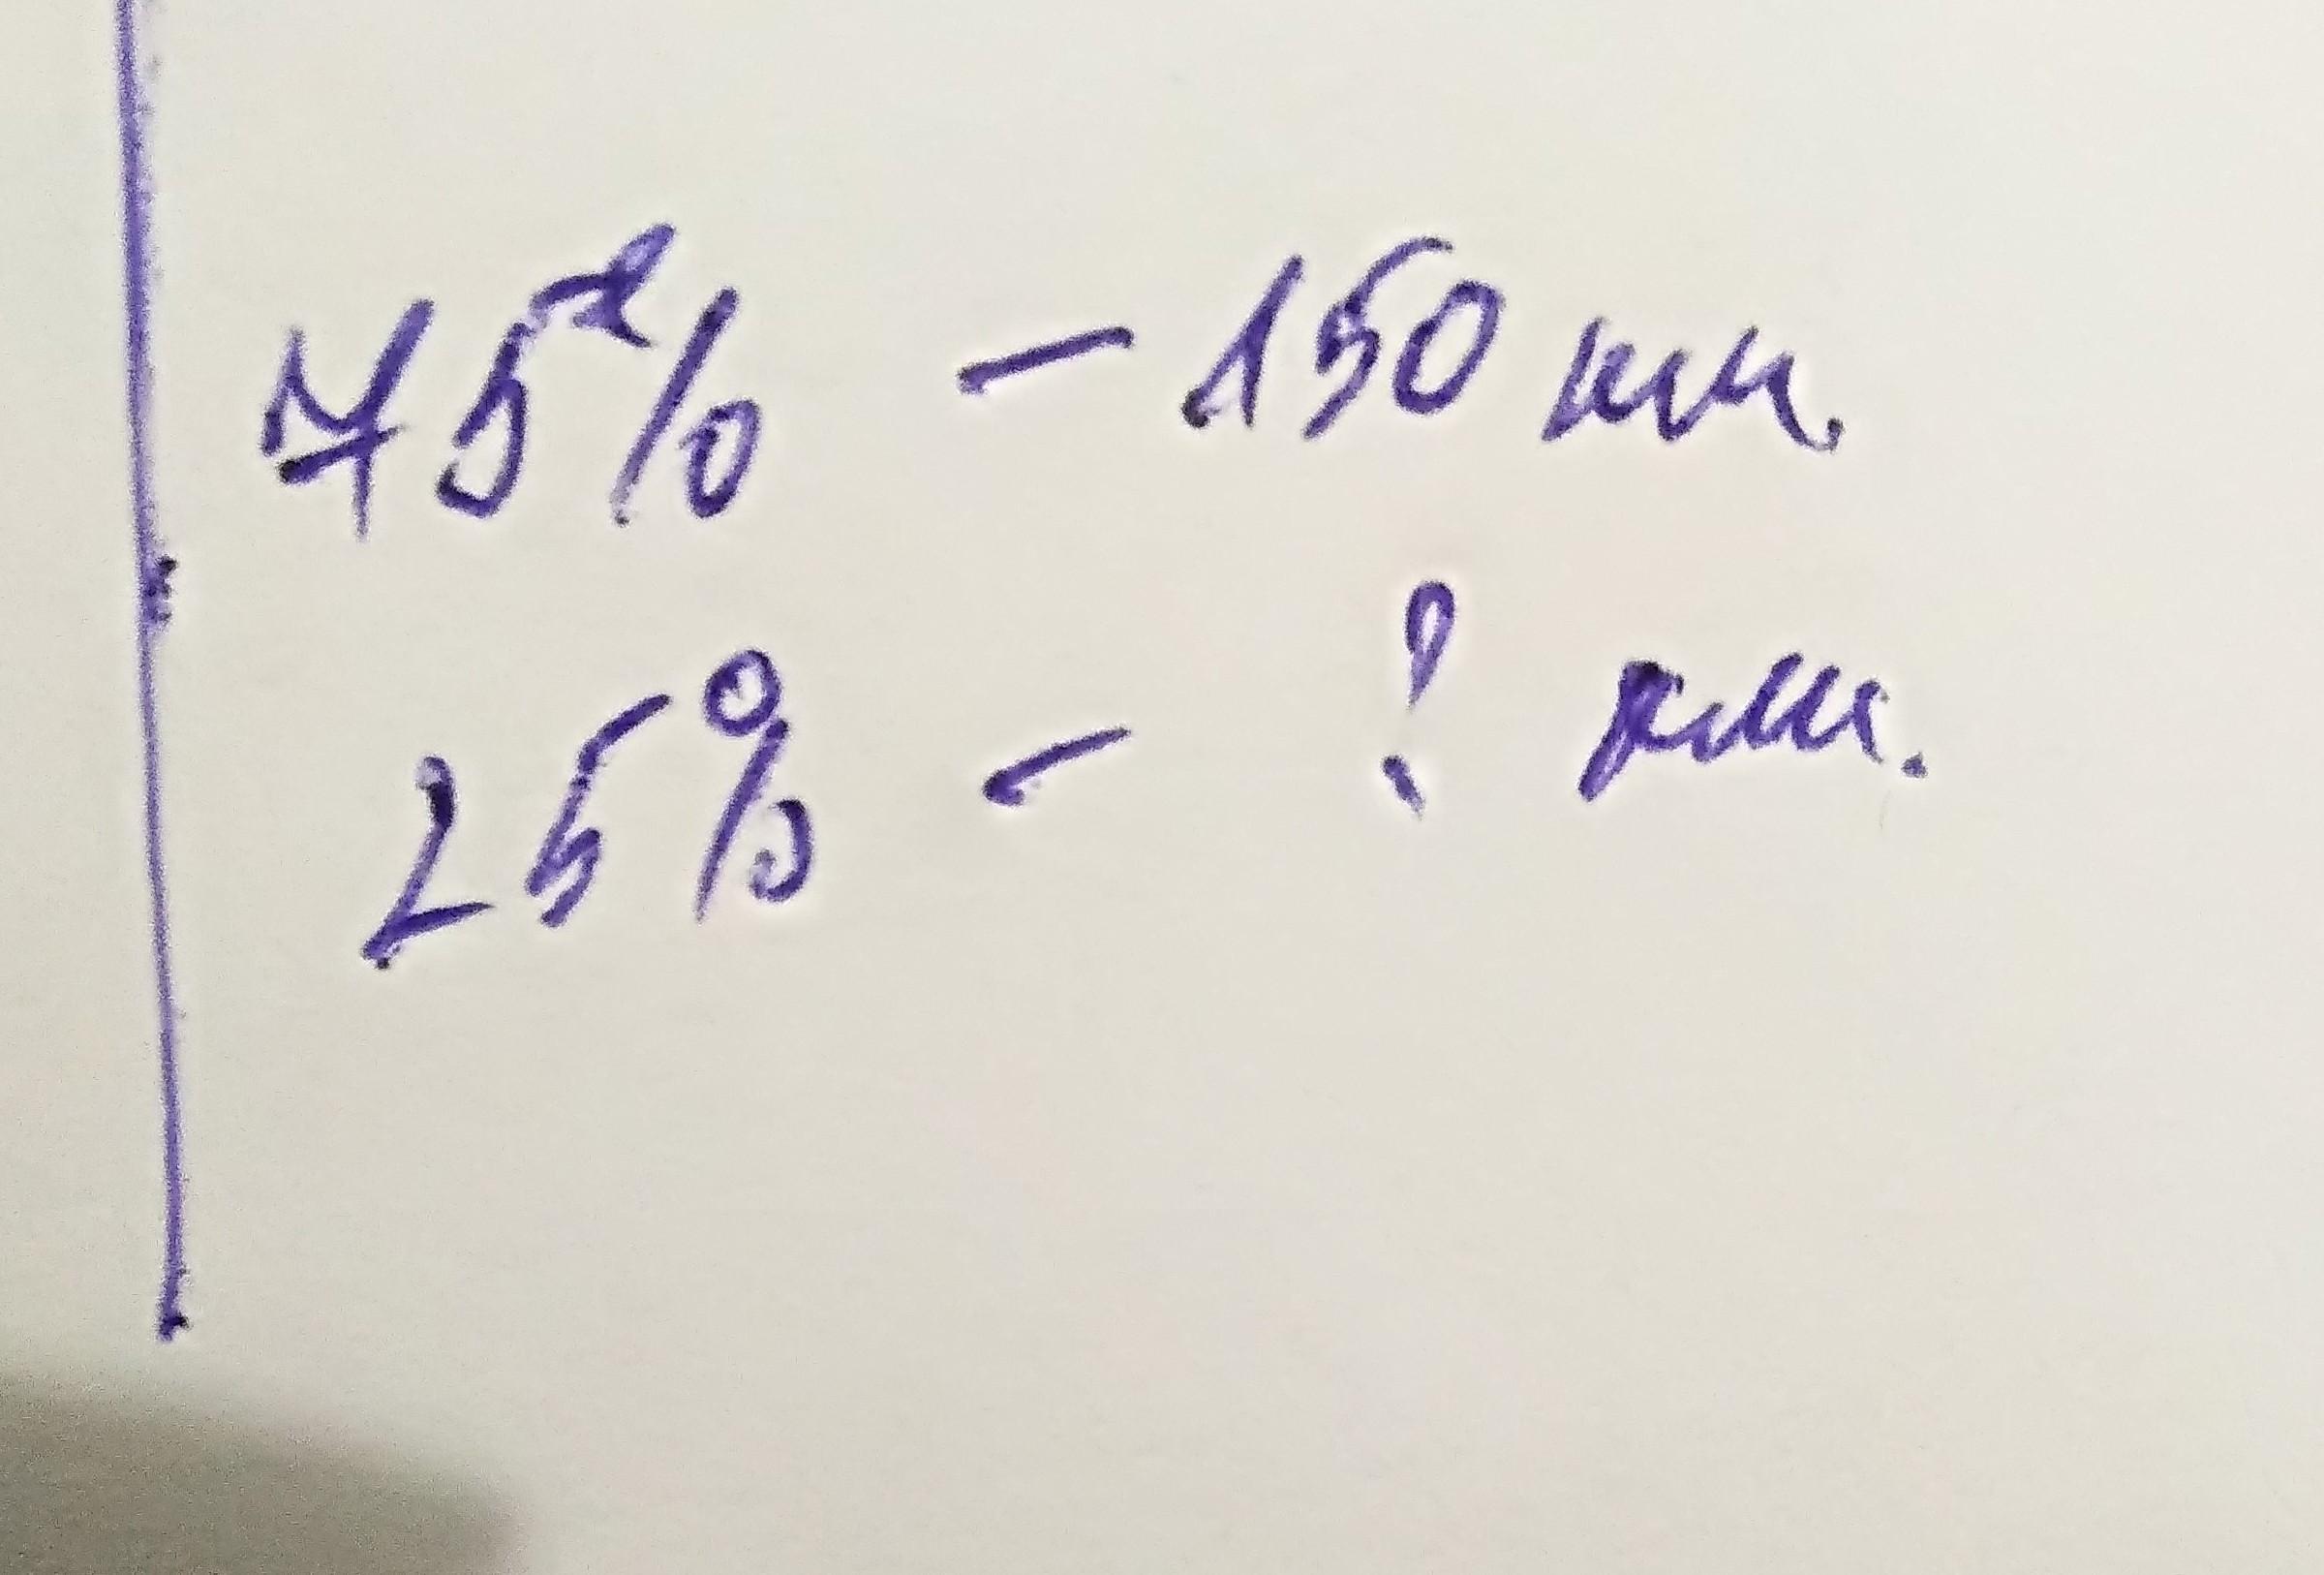 75% - 150 км.
25% - ? км.